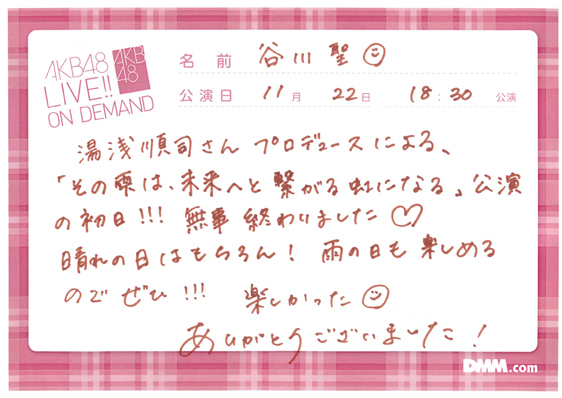 AKB48
LIVE!!
ON DEMAND
AKB
48
名前 谷川聖
公演日 11月 22日 18:30 公演
湯浅順司さん プロデュースによる、
「その雫は、未来へと繋がる虹になる」公演
の初日!!! 無事 終わりました♡
晴れの日はもちろん! 雨の日も楽しめる
のでぜひ!!! 楽しかった☺
ありがとうございました!
DMM.com